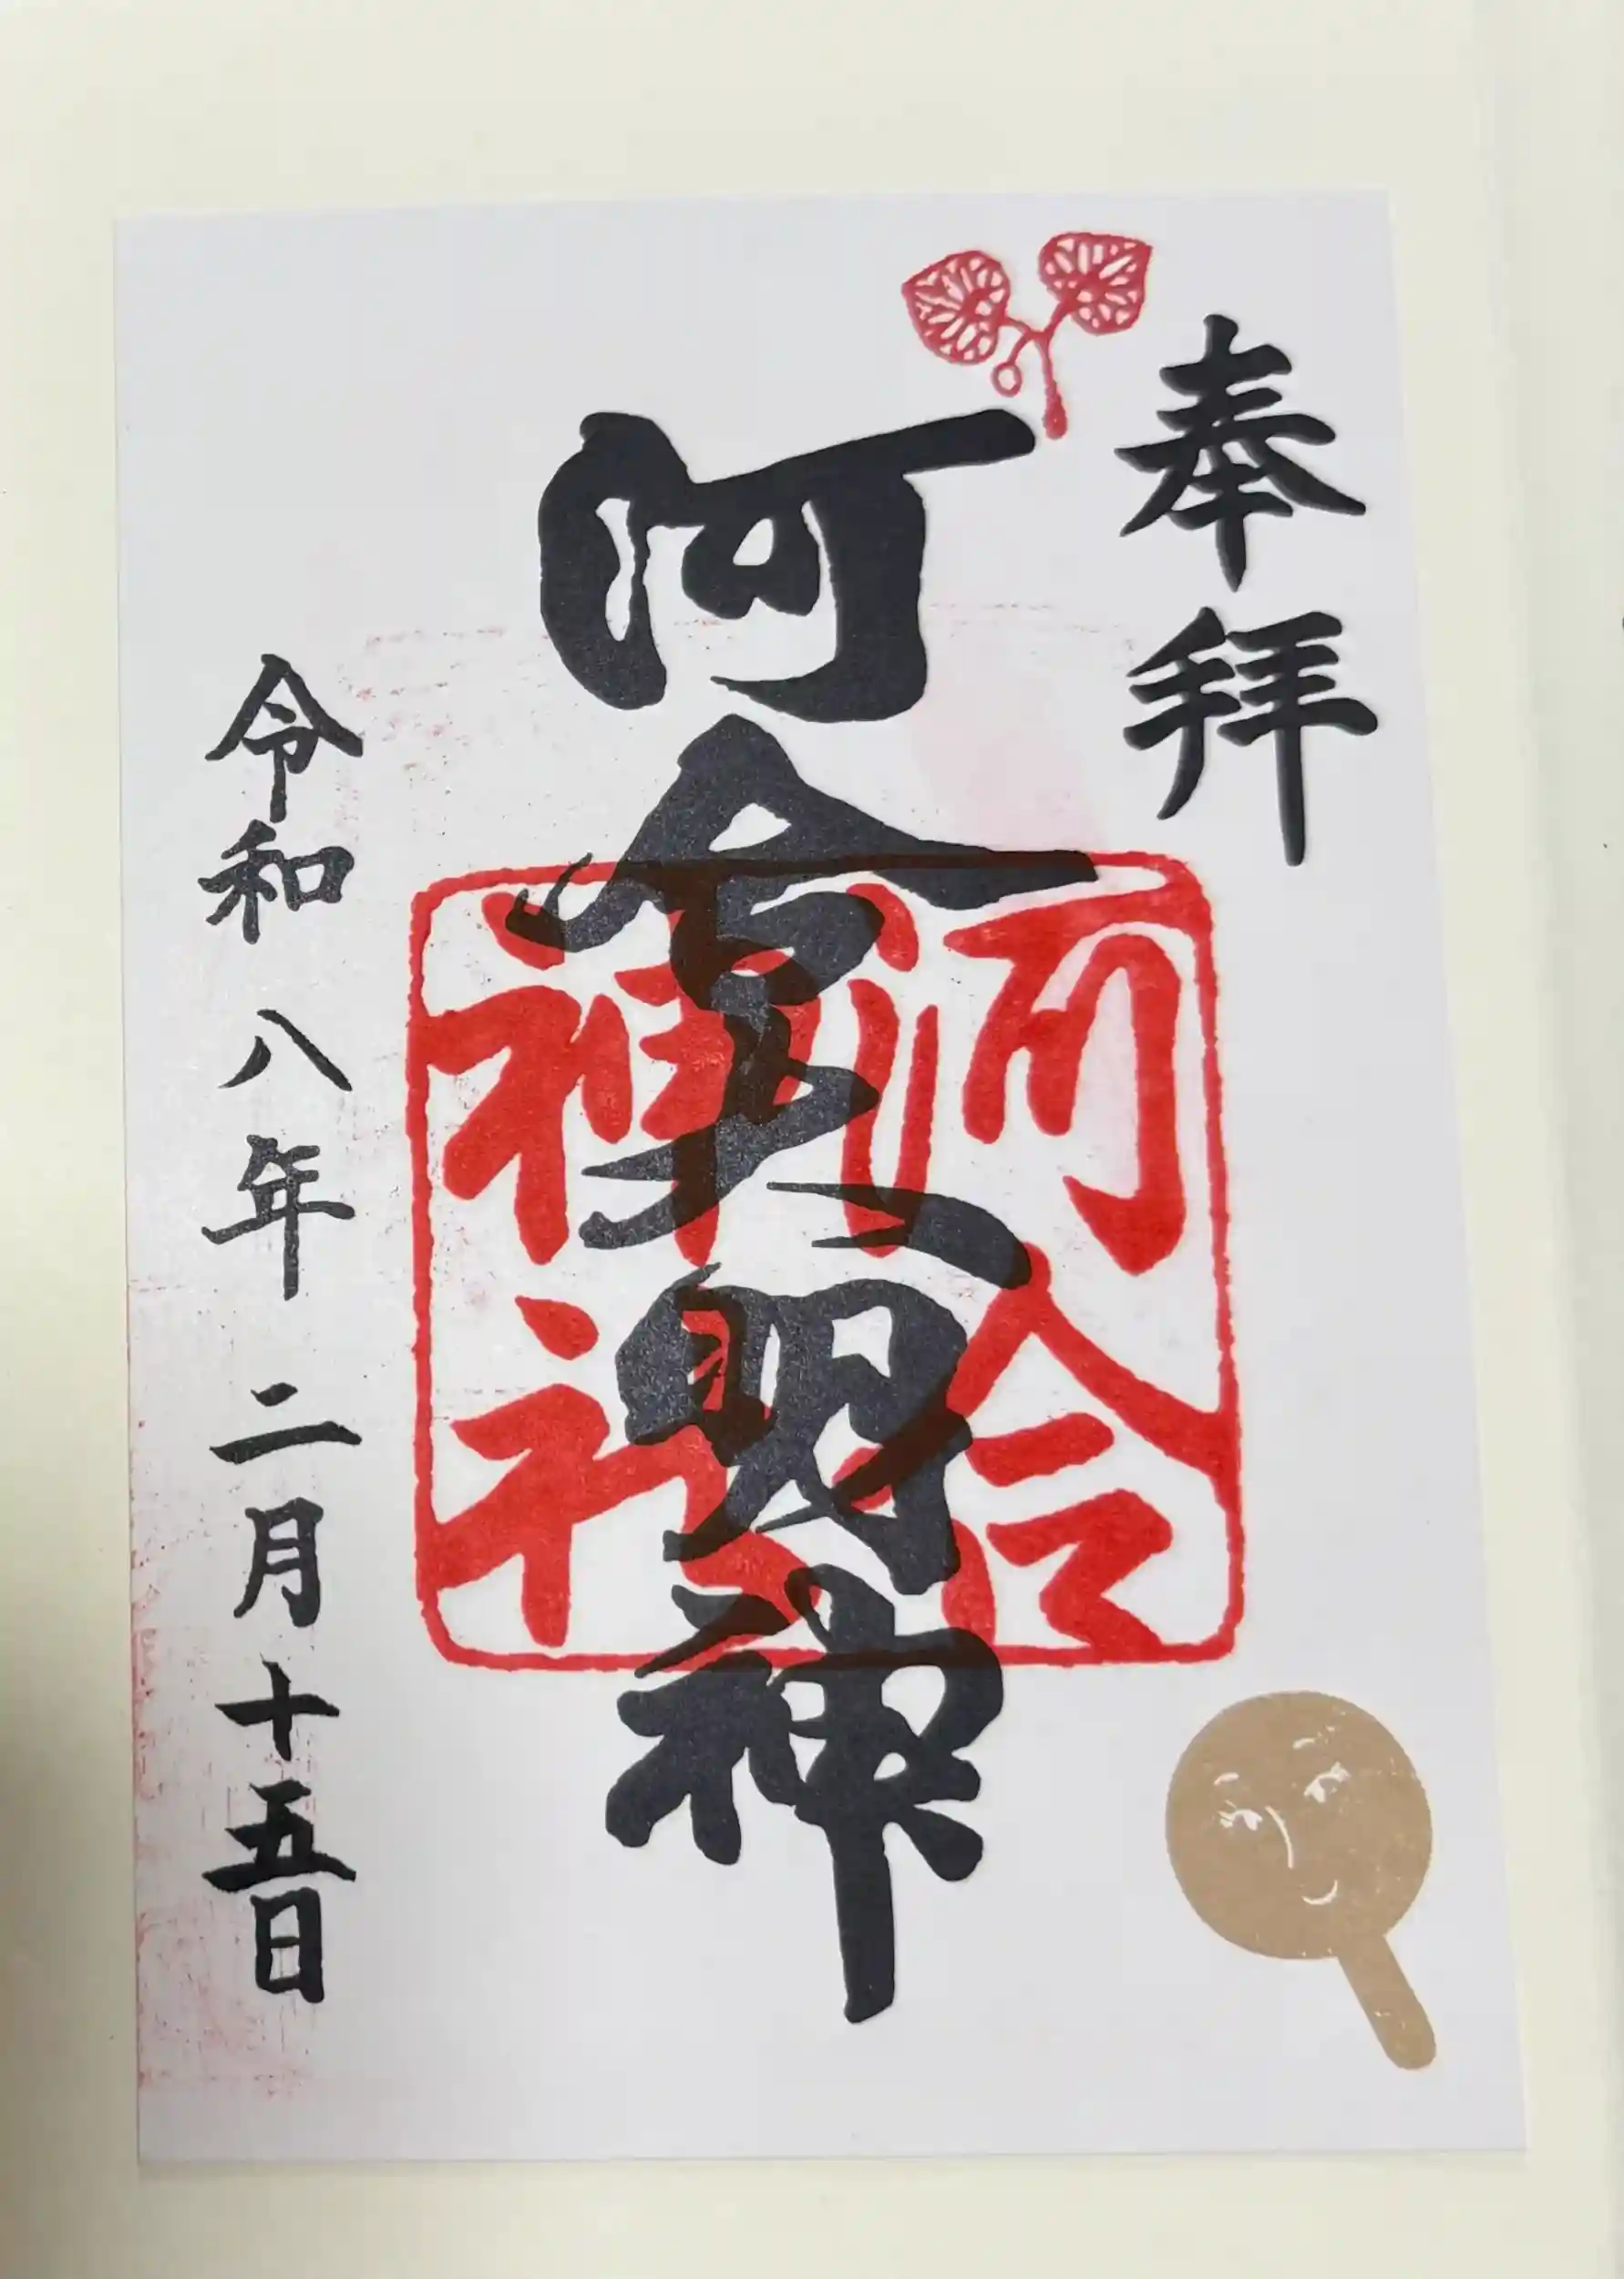 奉拝
河合大明神
河合
神社
令和八年二月十五日